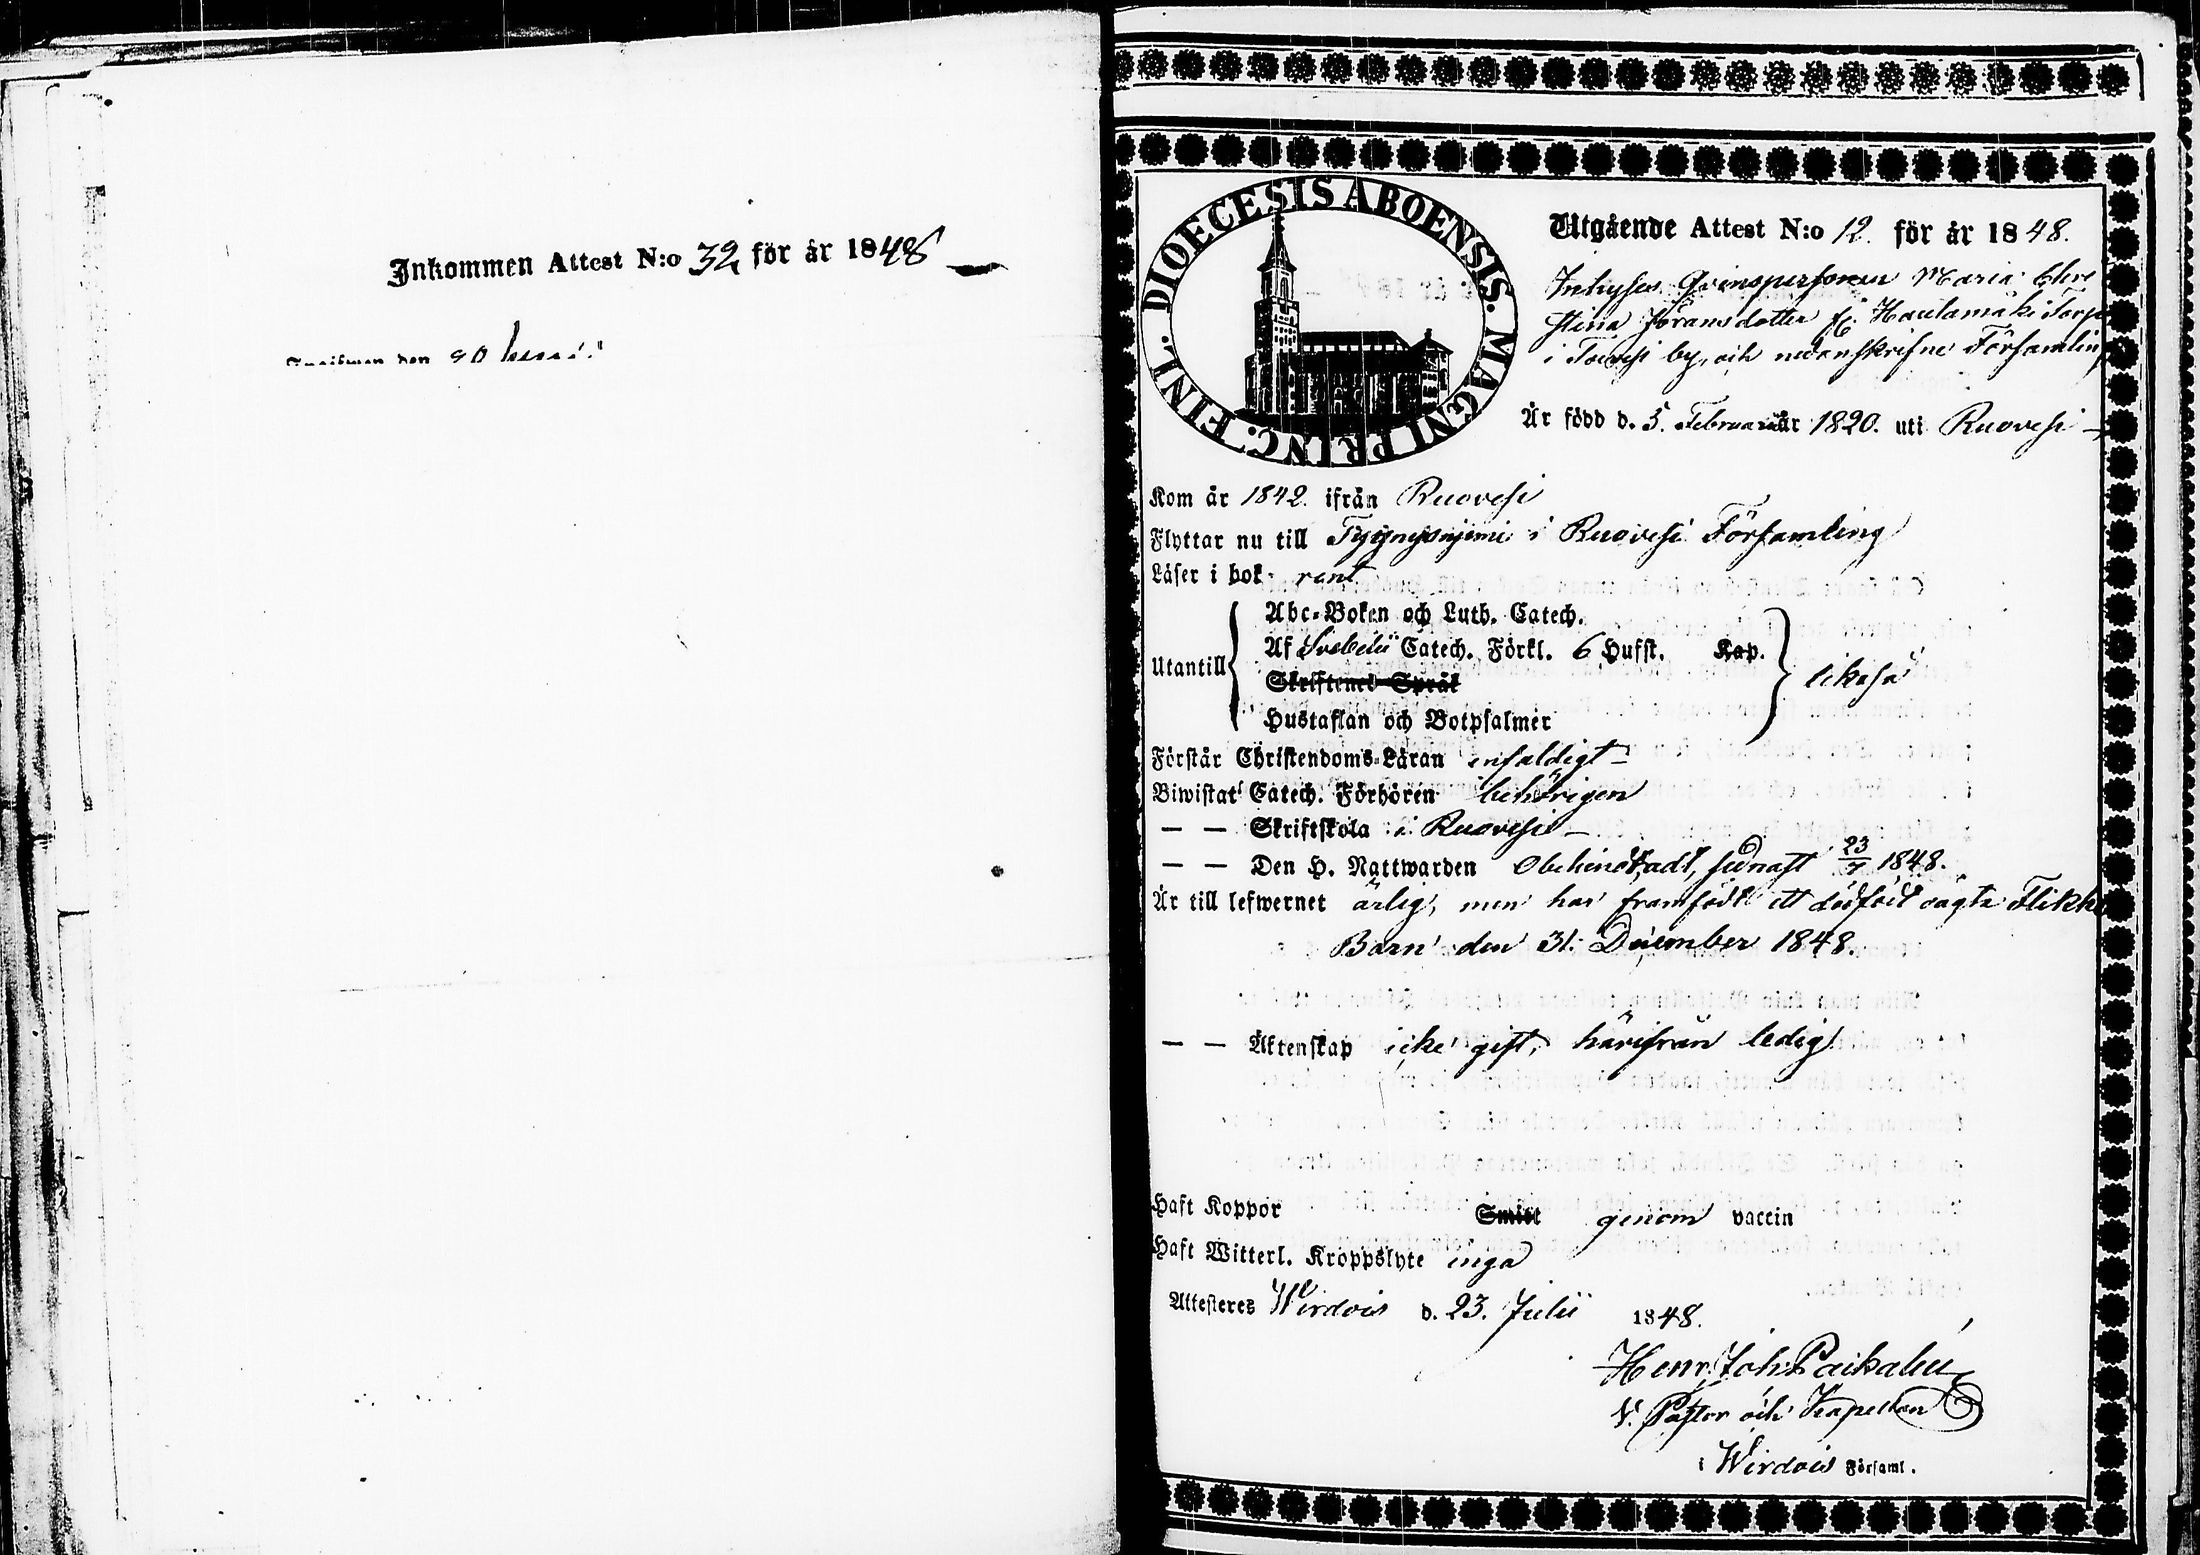 Inkommen Attest N:o 32 för år 1848
den 90
DIOECESIS ABOENSIS. MAGNI PRINC. FINL.
Utgående Attest N:o 12. för år 1848.
Inhyses Qvinspersonen Maria Chri
stina Jöransdotter fr. Hautamäki Torp
i by, och nedanskrifne Församling
Är född d. 5. Februarii år 1820. uti Ruovesi
Kom år 1842. ifrån Ruovesi
Flyttar nu till i Ruovesi Församling
Läser i bok rent
Utantill
Abc-Boken och Luth. Catech.
Af Svebelii Catech. Förkl. 6 Hufst. Kap.
Skriftenes Språk
Hustaflan och Botpsalmer
likaså
Förstår Christendoms-Läran enfaldigt
Biwistat Catech. Förhören behörigen
— — Skriftskola i Ruovesi
— — Den H. Nattwarden Obehindradt, sednast 23/7 1848.
Är till lefwernet ärlig, men har framfödt ett dödfödt oägta Flikke
Barn den 31. December 1848.
— — Äktenskap icke gift, härifrån ledig
Haft Koppor Smitt genom vaccin
Haft Witterl. Kroppslyte inga
Attesteres Wirdois d. 23. Julii 1848.
Henr. Joh. Paikalen
V. Pastor och Kapellan
i Wirdois Församl.